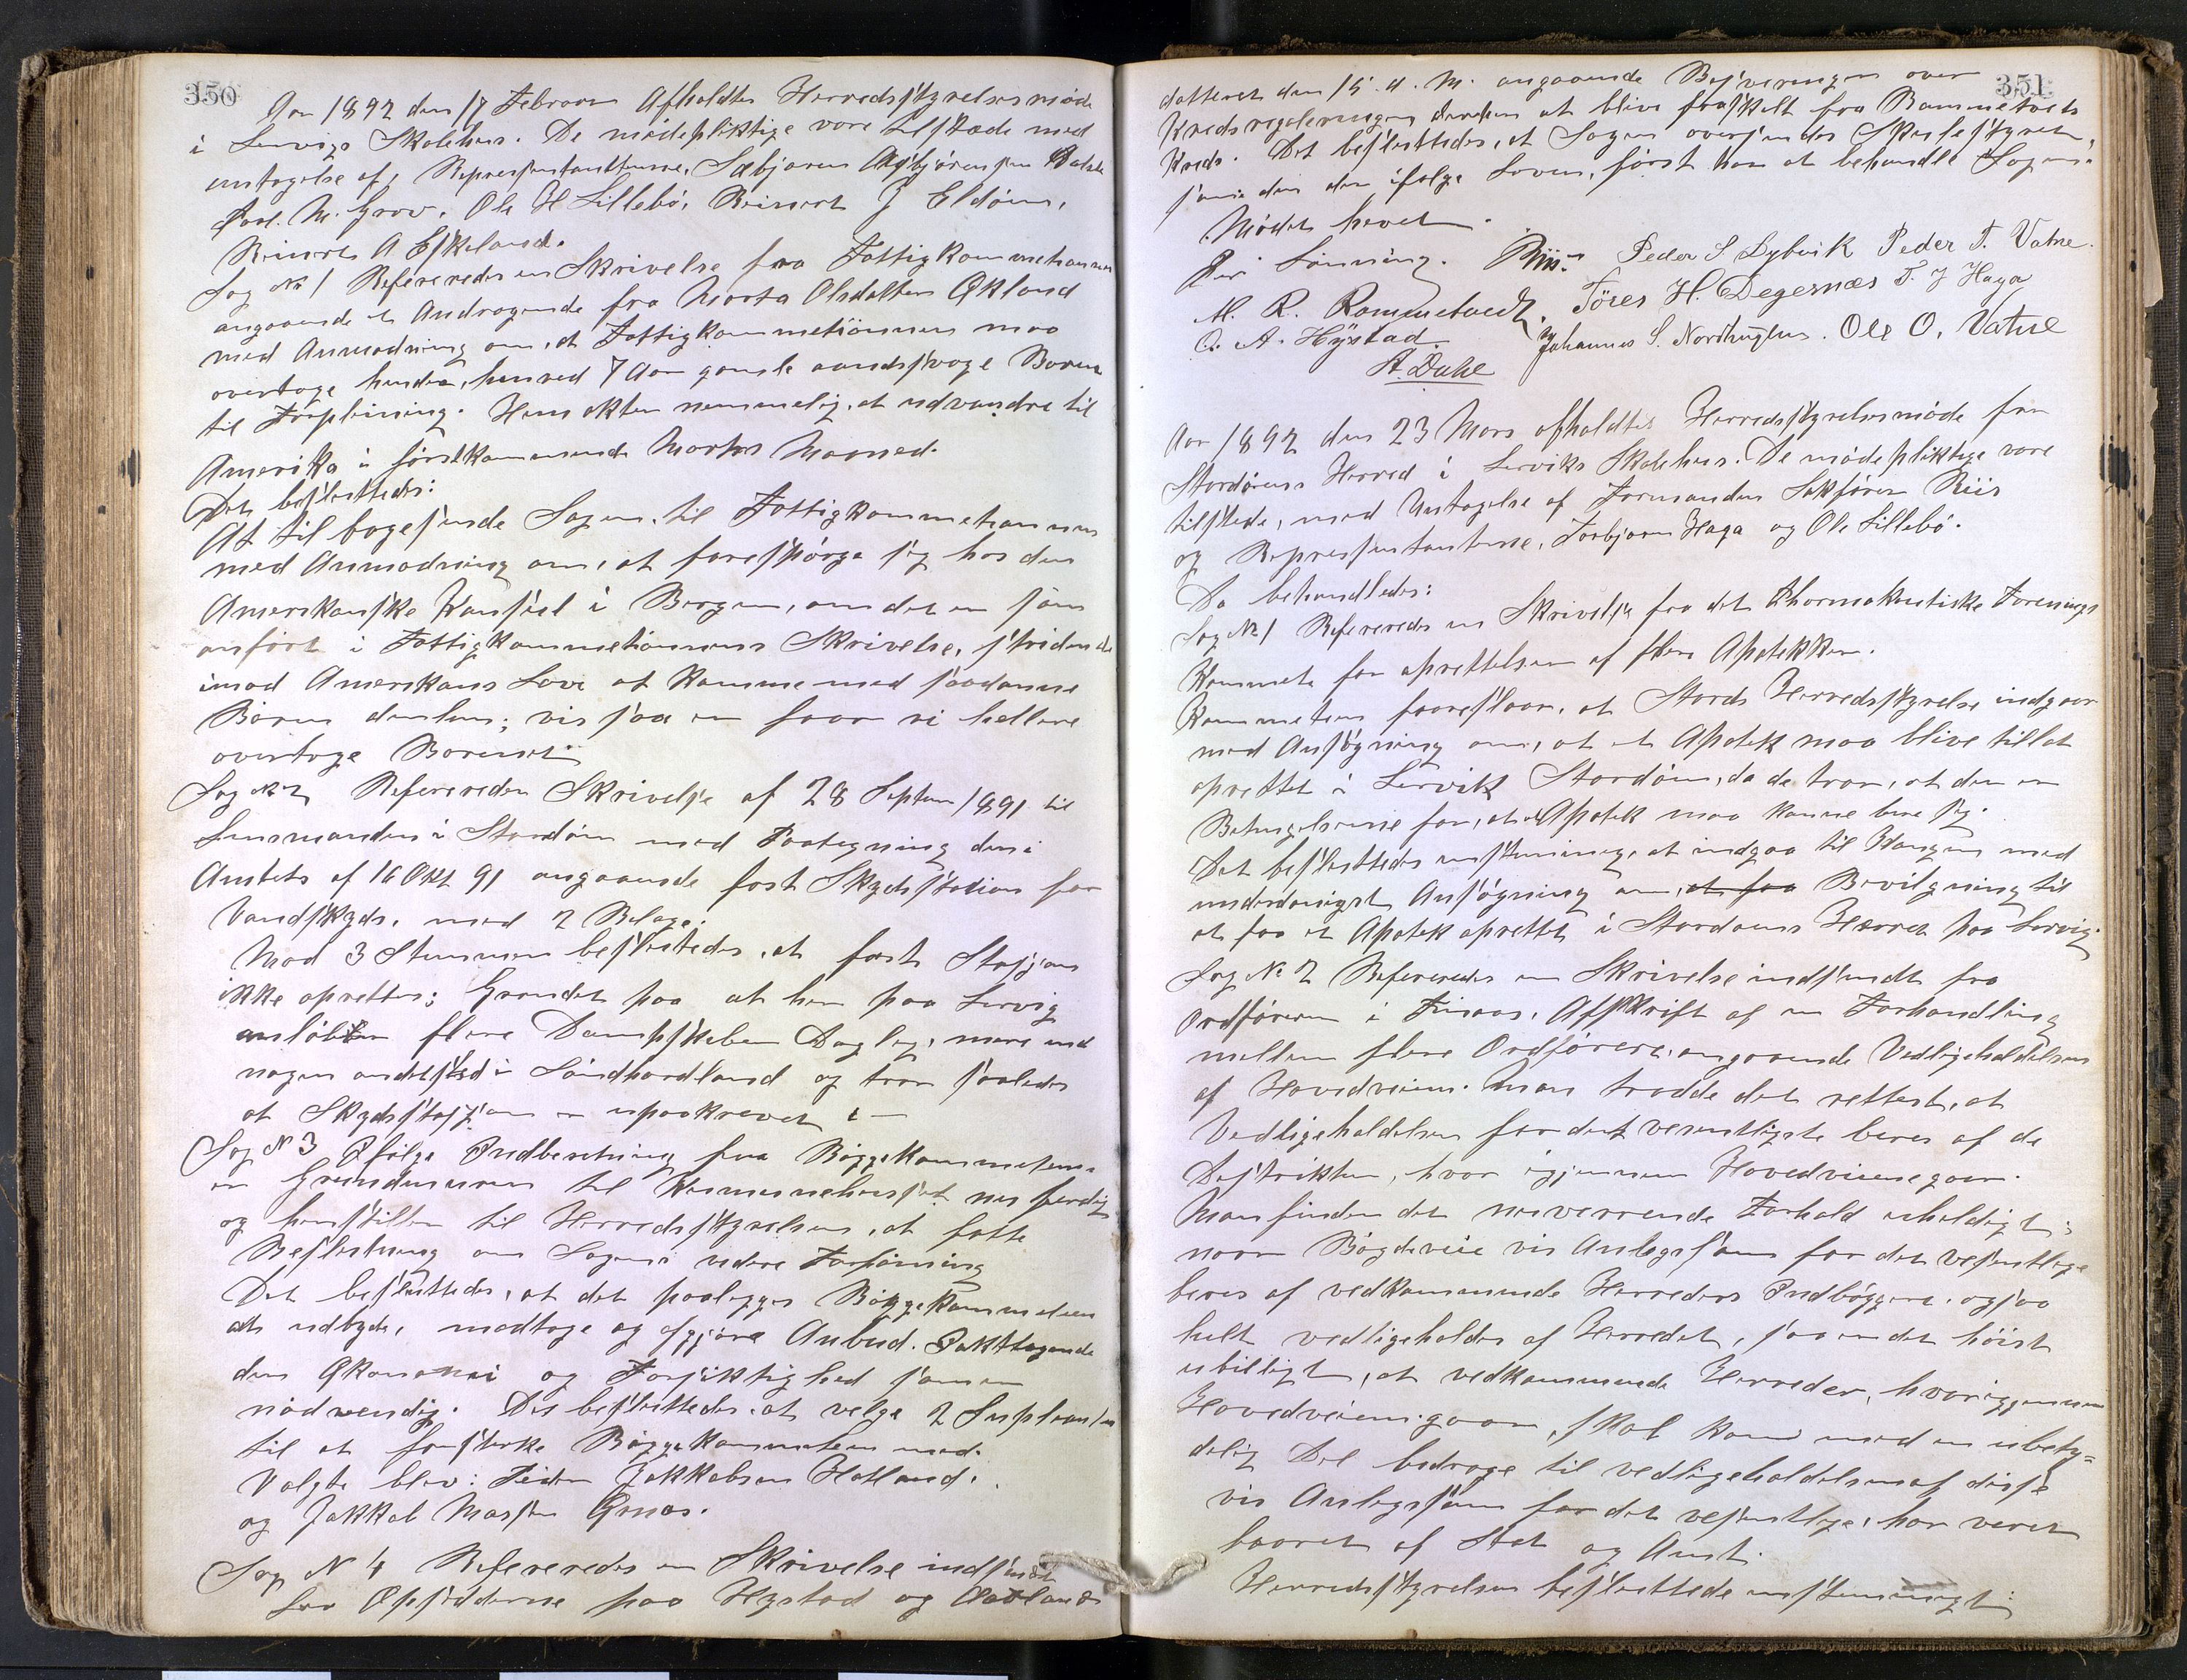 350
Aar 1892 den 17 Februar Afholdtes Herredstyrelsesmøde
i Lervigs Skolehus. De mødepliktige vare tilstæde med
untagelse af, Repressentantterne, Asbjørensen
M. Grov. Ole H Lillebø, Reinert J Eldøen,
Reinert A Eskeland.
Sag № 1 Refereredes en Skrivelse fra Fattigkommetionnen
angaaende et Andragende fra Marta Olsdatter Økland
med Anmodning om, at Fattigkommetiønnen maa
overtage hendes, henved 7 Aar gamle aandssvage Baren
til Forpleining. Hun akter nemmelig, at udvandre til
Amerika i førstkommende Martss Maaned.
Det besluttedes:
At til bagesende Sagen, til Fattigkommetionnen
med Anmodning om, at forespørge sig hos den
Amerikanske Konssul i Bergen, om det er som
anført i Fattigkommetiønnens Skrivelse, stridende
imod Amerikans Love at komme med saadanne
Børen derhen; vis saa er faar vi hellere
overtage Barenet
Sag № 2 Refereredes Skrivelse af 28 Septem 1891 til
Lensmanden i Stordøen med Paategning den i
Amtets af 16 Okt 91 angaaende fast Skydsstation for
Vandskyds, med 2 Belage.
Mod 3 Stemmer besluttedes, at fast Stasjon
ikke oprettes; Grundet paa at her paa Lervig
anløber flere Dampskeber Daglig, mere end
nogen andetsted i Søndhordland og tror saaledes
at Skydsstasjon er upaakrevet
Sag № 3 Ifølge Indberetning fra Byggekommeteen
er Grundmuren til Kommunehusset nu ferdig
og henstiller til Herredsstyrelsen, at fatte
Beslutning om Sagens videre Forføining
Det besluttedes, at det paalegges Byggekommeteen
at udbyde, modtage og afgjøre Anbud. Iakttagende
den Økonomi og Forsiktighed som er
nødvendig. Det besluttedes at velge 2 Supleanter
til at forsterke Byggekommeteen med.
Valgte blev: Peder Jakkobsen Hatland.
og Jakkob Massen
Sag № 4 Refereredes en Skrivelse indsendt
fra Opsidderne paa Hystad og
351
datteret den 15 d. M. angaaende Besveringer over
Kredsregoleringen derhen at blive fraskelt fra Rommetveits
Kreds. Det besluttedes, at Sagen oversendes Skolestyret,
som den der ifølge Loven, først har at behandle Sagen.
Mødet hevet.
Per Lønning. Riis. Peder S. Dybvik Peder T. Vatne.
M. R. Rommetvedt. Tøres H. Degernæs T. J Haga
O. A. Hystad. Johannes S. Nordhuglen. Ole O. Vatne
A. Dahl
Aar 1892 den 23 Mars afholdtes Herredsstyrelsesmøde for
Stordøens Herred i Lerviks Skolehus. De mødepliktige vare
tilstede, med Untagelse af Formanden Sakfører Riis
og Repressentanterne, Torbjørn Haga og Ole Lillebø.
Da behandledes:
Sag № 1 Refereredes en Skrivelse fra det Pharmakeutiske Forenings
Kommete for oprettelsen af flere Apotekker.
Kommeteen foreslaar, at Stords Herredsstyrelse indgaar
med Ansøgning om, at et Apotek maa blive tillat
oprettet i Lervik Stordøen, da de tror, at der er
Betingelserne for, at et Apotek maa kunne bere sig.
Det besluttedes enstemmig, at indgaa til Kongen med
underdanigst Ansøgning om, at faa Bevilgning til
at faa et Apotek oprettet i Stordøens Herred paa Lervig.
Sag № 2 Refereredes en Skrivelse indsendt fra
Ordføreren i Finaas, Afskrift af en Forhandling
mellem flere Ordførere, angaaende Vedligeholdelsen
af Hovedveiene. Man trodde det rettest, at
Vedligeholdelsen for det vesentligste beres af de
Distrikter, hvor igjennem Hovedveiene gaar.
Man finder det nuverrende Forhold uheldigt;
naar Bygdeveie vis Anlegs som for det vesentlige
beres af vedkommende Herreders Indbyggere, ogsaa
helt vedligeholdes af Herredet, saa er det høist
ubilligt, at vedkommende Herreder, hvoriggennem
Hovedveiene gaar, skal kun med en ubety=
delig Del bedrage til vedligeholdelsen af disse
vis Anlegs som for det vesentlige, har veret
baaret af Stat og Amt.
Herredsstyrelsen besluttede enstemmigt: